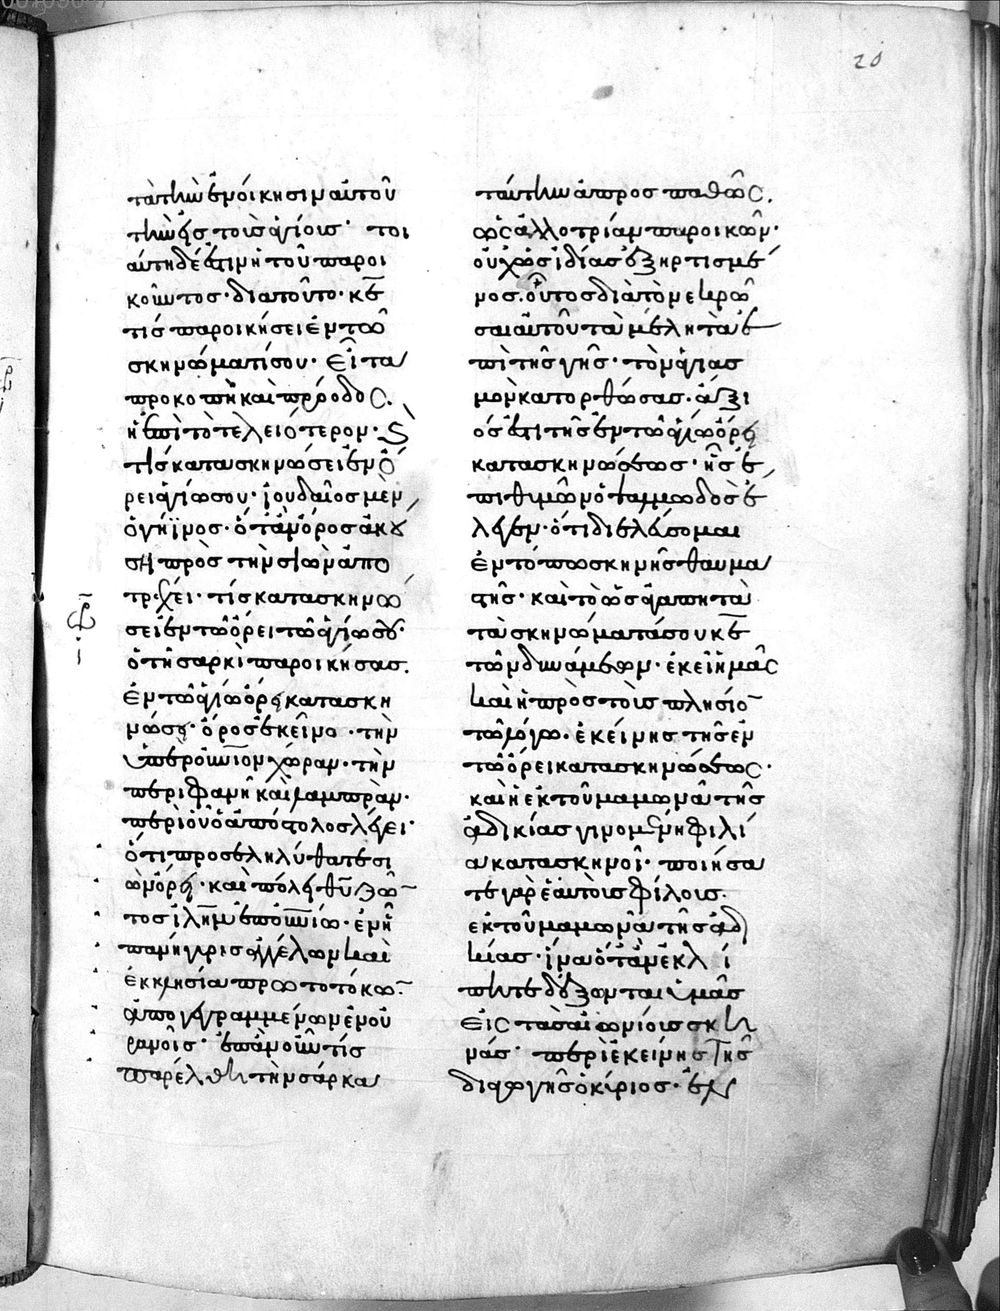 20
τὰ τὴν ἐνοίκησιν αὐτοῦ
τὴν ἐς τοὺς ἁγίους· τοι
αύτη δέ ἐστιν ἡ τοῦ παροι
κοῦντος· διὰ τοῦτο· κε
τίς παροικήσει ἐν τῶ
σκηνώματί σου· Εἶτα
προκοπὴ καὶ πρόοδος.
ἡ ἐπὶ τὸ τελειότερον· Ϛ
τίς κατασκηνώσει ἐν ὄ
ρει ἁγίω σου· ἰουδαῖος μὲν
ὁ γήϊνος· ὅταν ὄρος ἀκού
ση πρὸς τὴν σιὼν ἀπο
τρέχει· τίς κατασκηνώ
σει ἐν τῶ ὄρει τῶ ἁγίω σου·
ὁ τῆ σαρκὶ παροικήσας.
ἐν τῶ ἁγίω ὄρει κατασκη
νώσει· ὄρος ἐκεῖνο· τὴν
ὑπερουνιον χώραν· τὴν
περιφανῆ καὶ λαμπράν·
περὶ οὗ ὁ ἀπόστολος λέγει·
ὅτι προσεληλύθατε σι
ὼν ὄρει· καὶ πόλει θυ ζῶ
τος ιλημ ἐπουνίω· ἐν ἧ
πανήγυρις ἀγγέλων καὶ
ἐκκλησία πρωτοτόκω
ἀπογεγραμμένων ἐν οὐ
ρανοῖς· ἐπὰν οὖν τίς
παρέλθη τὴν σάρκα
ταύτην ἀπροσπαθῶς.
ὡς ἀλλοτρίαν παροικῶν·
οὐχ ὡς ἰδίας ἐξηρτισμέ
νος. οὗτος διὰ τὸ νεκρῶ
σαι αὐτοῦ τὰ μέλη τὰ ἐ
πὶ τῆς γῆς· τὸν ἁγιας
μὸν κατορθώσας· ἄξι
ός ἐστι τῆς ἐν τῶ ἁγίω ὄρει
κατασκηνώσεως· ἧς ἐ
πιθυμῶν ὁ ψαλμωδὸς ἔ
λεγεν· ὅτι διελεύσομαι
ἐν τόπω σκηνῆς θαυμα
στῆς· καὶ τὸ ὡς ἀγαπητὰ
τὰ σκηνώματά σου κε
τῶν δυνάμεων· ἐκεῖ ἡμᾶς
καὶ ἡ πρὸς τοὺς πλησίο
τῶ λόγω· ἐκείνης τῆς ἐν
τῶ ὄρει κατασκηνώσεως·
καὶ ἡ ἐκ τοῦ μαμωνᾶ τῆς
ἀδικίας γινομένη φιλί
α κατασκηνοῖ· ποιήσα
τε γὰρ ἑαυτοῖς φίλους.
ἐκ τοῦ μαμωνᾶ τῆς ἀδι
κίας· ἵνα ὅταν ἐκλί
πητε δέξωνται ὑμᾶς
εἰς τὰς αἰωνίους σκη
νάς· περὶ ἐκείνης τῆς
διαγωγῆς ὁ κύριος· ἐν